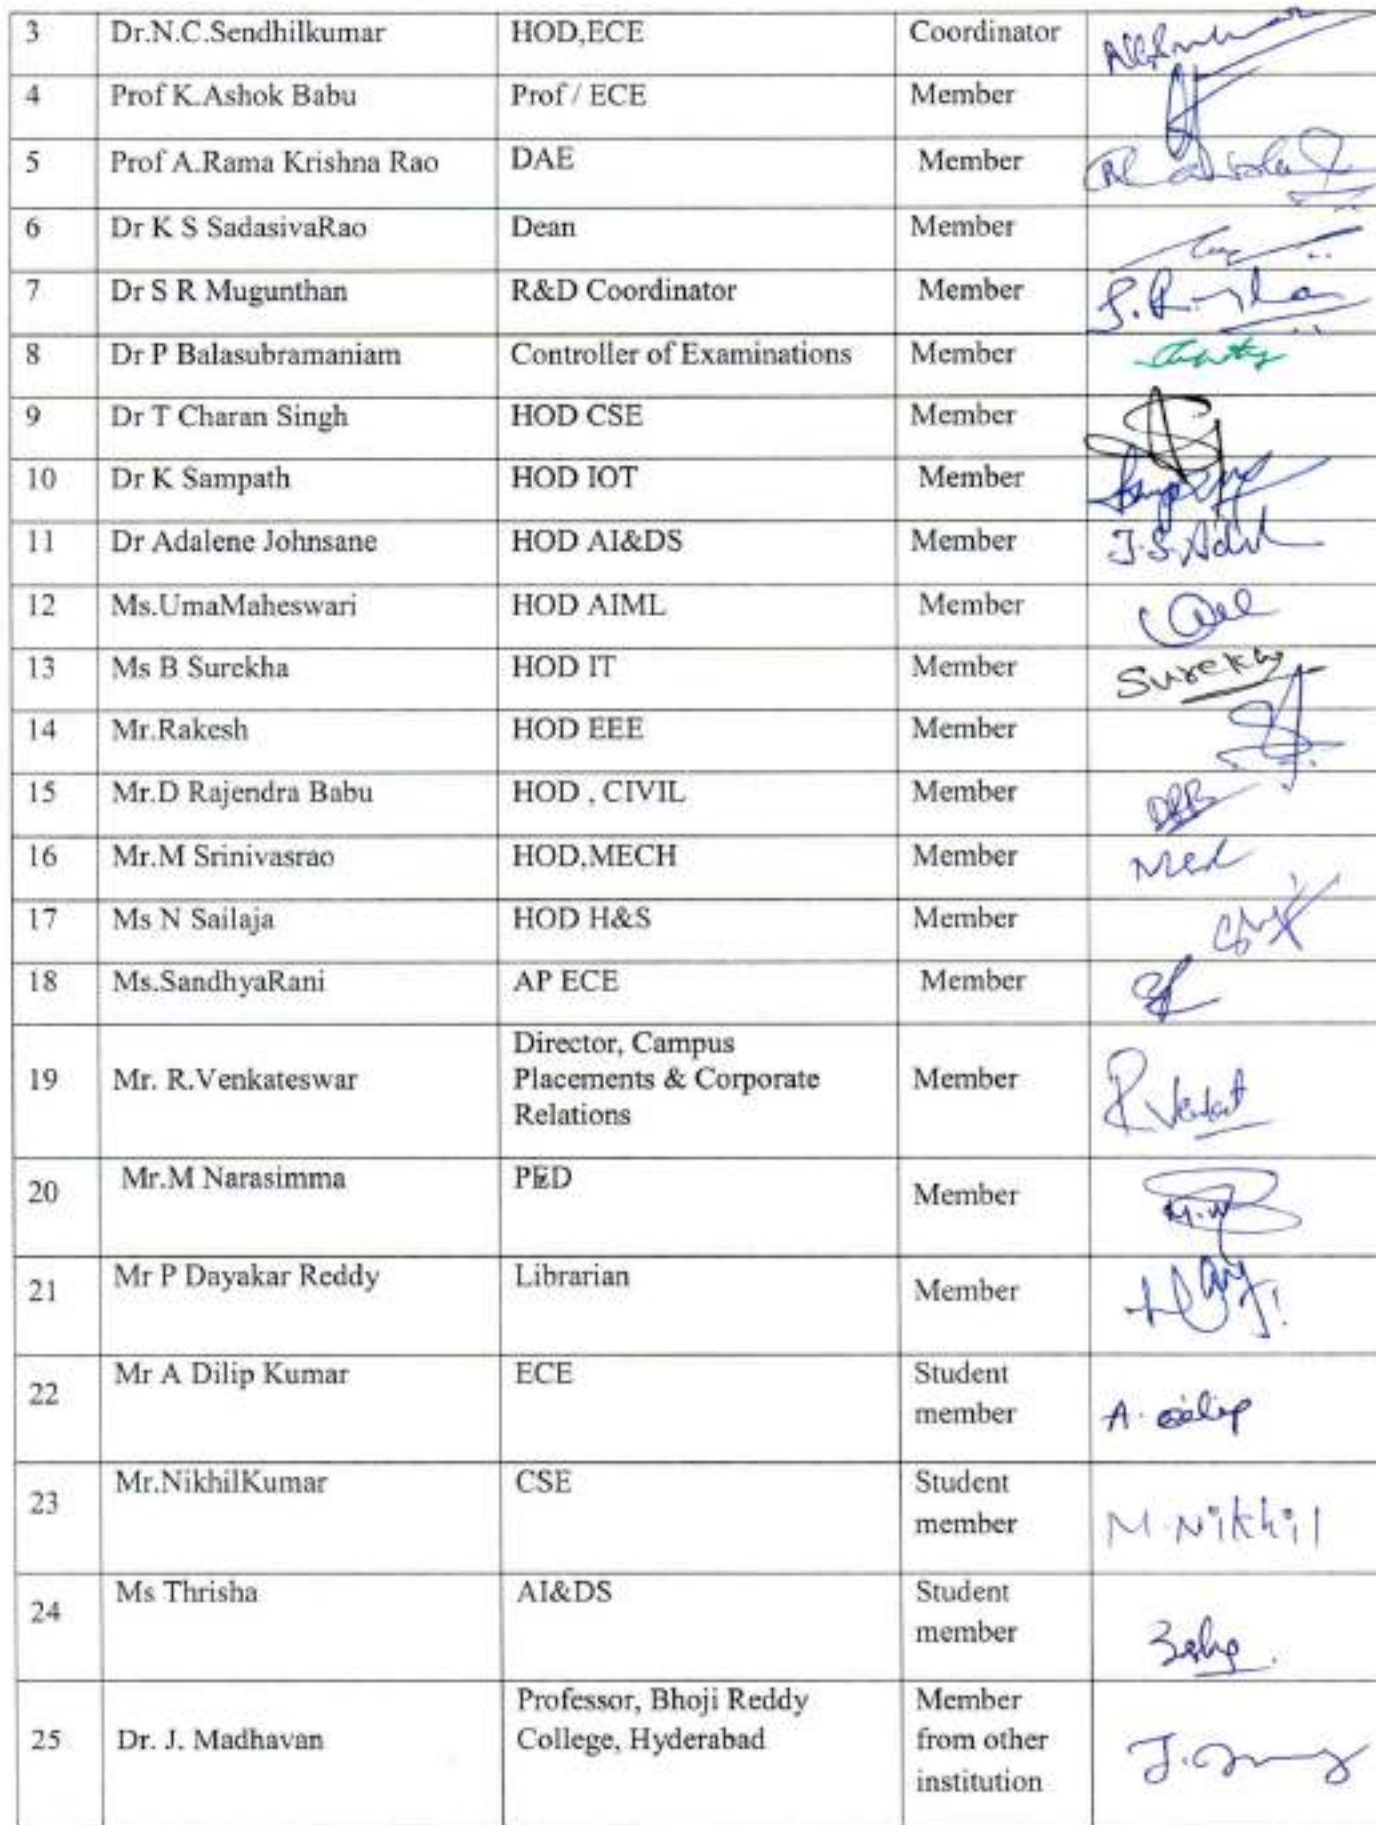 3 Dr.N.C.Sendhilkumar HOD,ECE Coordinator
4 Prof K.Ashok Babu Prof / ECE Member
5 Prof A.Rama Krishna Rao DAE Member
6 Dr K S SadasivaRao Dean Member
7 Dr S R Mugunthan R&D Coordinator Member
8 Dr P Balasubramaniam Controller of Examinations Member
9 Dr T Charan Singh HOD CSE Member
10 Dr K Sampath HOD IOT Member
11 Dr Adalene Johnsane HOD AI&DS Member
12 Ms.UmaMaheswari HOD AIML Member
13 Ms B Surekha HOD IT Member Surekha
14 Mr.Rakesh HOD EEE Member
15 Mr.D Rajendra Babu HOD , CIVIL Member DRB
16 Mr.M Srinivasrao HOD,MECH Member
17 Ms N Sailaja HOD H&S Member
18 Ms.SandhyaRani AP ECE Member
19 Mr. R.Venkateswar Director, Campus
Placements & Corporate
Relations Member R Venkat
20 Mr.M Narasimma PED Member
21 Mr P Dayakar Reddy Librarian Member
22 Mr A Dilip Kumar ECE Student
member A. Dilip
23 Mr.NikhilKumar CSE Student
member M. Nikhil
24 Ms Thrisha AI&DS Student
member
25 Dr. J. Madhavan Professor, Bhoji Reddy
College, Hyderabad Member
from other
institution